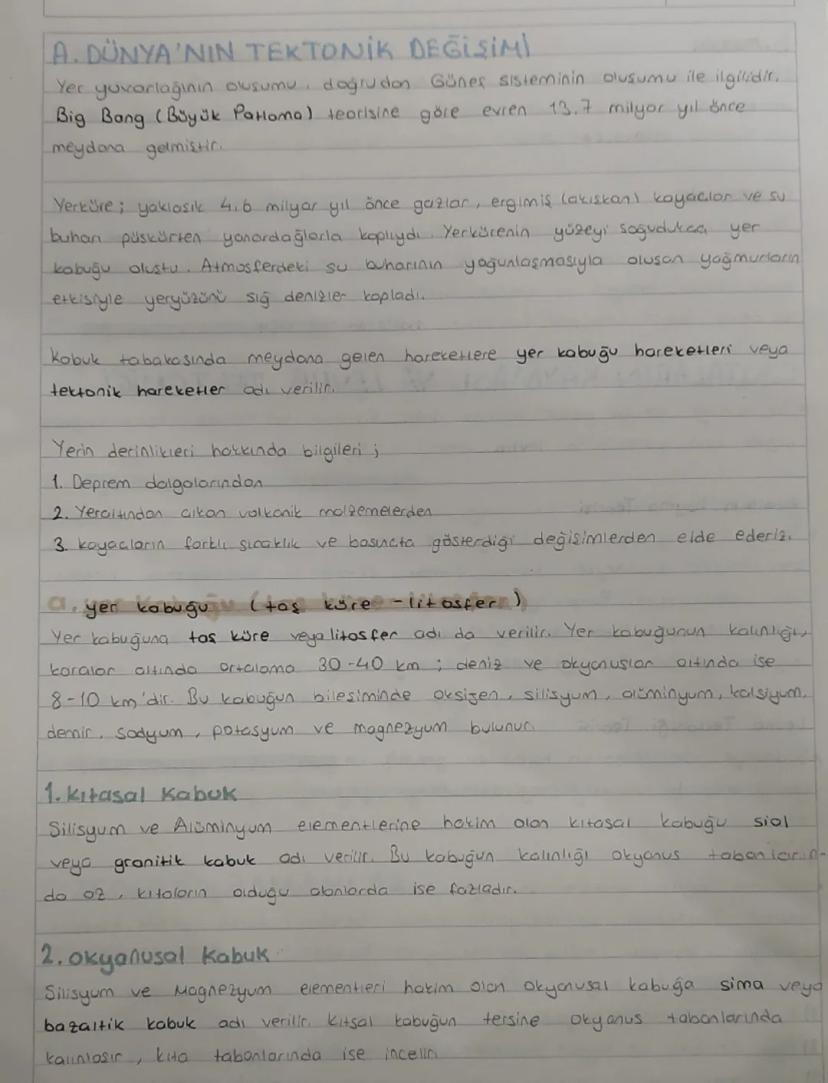 A. DÜNYA'NIN TEKTONİK DEĞİŞİMİ
Yer yuvarlağının oluşumu, doğrudan Güneş sisteminin oluşumu ile ilgilidir.
Big Bang (Büyük Patlama) teorisine göre evren 13.7 milyar yıl önce
meydana gelmiştir.
Yerküre; yaklaşık 4.6 milyar yıl önce gazlar, ergimiş (akışkan) kayaçlar ve su
buharı püskürten yanardağlarla kaplıydı. Yerkürenin yüzeyi soğudukça yer
kabuğu oluştu. Atmosferdeki su buharının yoğunlaşmasıyla oluşan yağmurların
etkisiyle yeryüzünü sığ denizler kapladı.
Kabuk tabakasında meydana gelen hareketlere yer kabuğu hareketleri veya
tektonik hareketler adı verilir.
Yerin derinlikleri hakkında bilgileri ;
1. Deprem dalgalarından
2. Yeraltından çıkan volkanik malzemelerden
3. kayaçların farklı sıcaklık ve basınçta gösterdiği değişimlerden elde ederiz.
a. yer kabuğu (taş küre - litosfer)
Yer kabuğuna taş küre veya litosfer adı da verilir. Yer kabuğunun kalınlığı,
karalar altında ortalama 30-40 km ; deniz ve okyanuslar altında ise
8-10 km'dir. Bu kabuğun bileşiminde oksijen, silisyum, alüminyum, kalsiyum,
demir, sodyum, potasyum ve magnezyum bulunur.
1. kıtasal Kabuk
Silisyum ve Alüminyum elementlerine hakim olan kıtasal kabuğu sial
veya granitik kabuk adı verilir. Bu kabuğun kalınlığı okyanus tabanların-
da az, kıtaların olduğu alanlarda ise fazladır.
2. okyanusal Kabuk
Silisyum ve Magnezyum elementleri hakim olan okyanusal kabuğa sima veya
bazaltik kabuk adı verilir. kıtsal kabuğun tersine okyanus tabanlarında
kalınlaşır, kıta tabanlarında ise incelir.